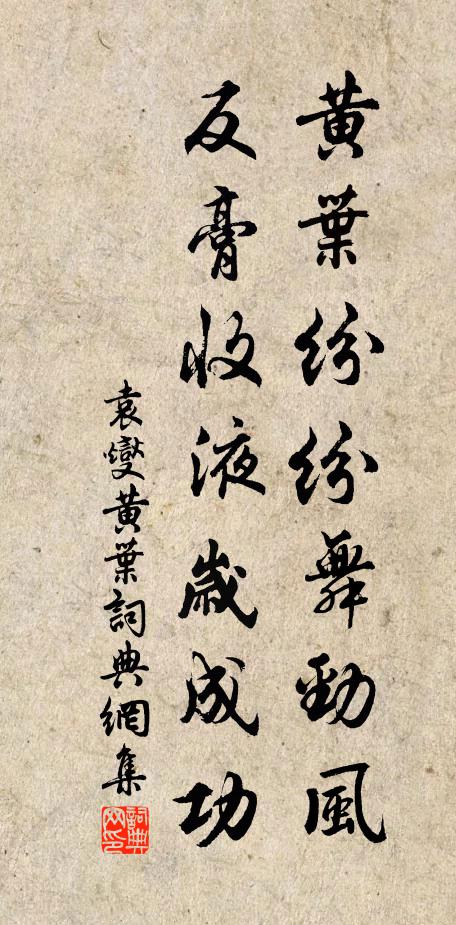 黃葉紛紛舞勁風
反膏收液歲成功
袁燮黃葉詞典網集
詞典網印